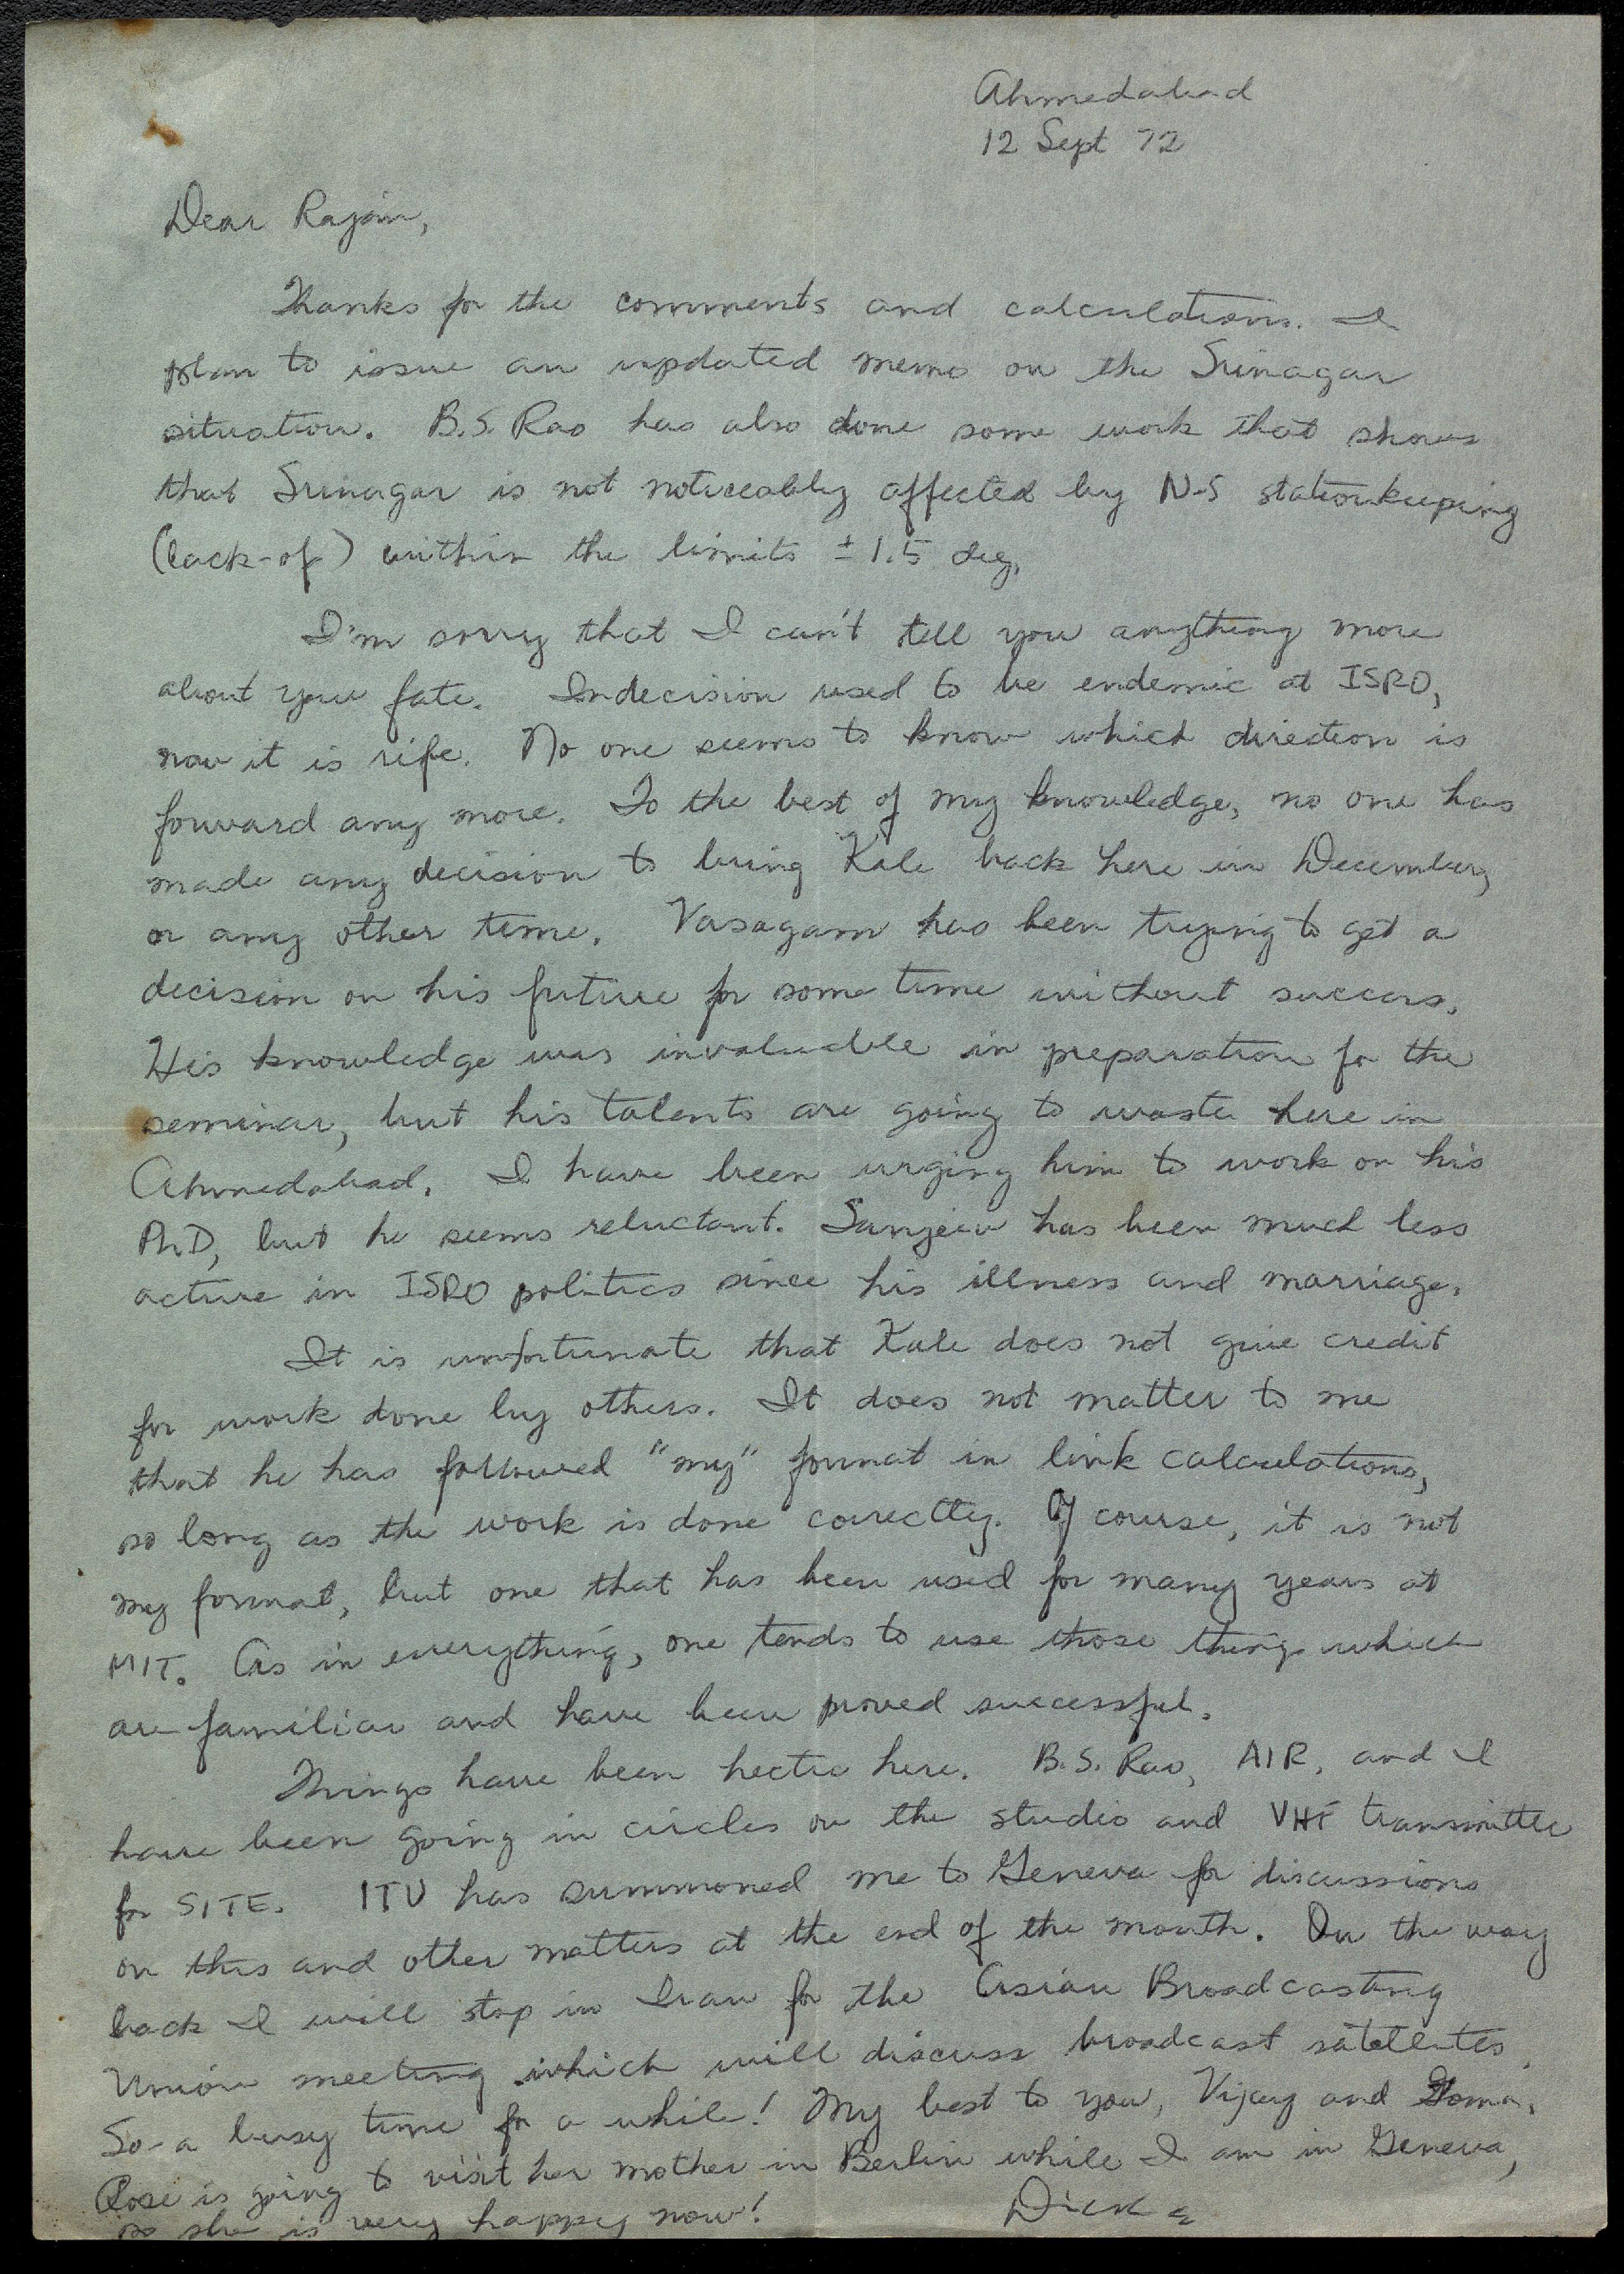 Ahmedabad
12 Sept 72
Dear Rajan,
Thanks for the comments and calculations. I
plan to issue an updated memo on the Srinagar
situation. B.S. Rao has also done some work that shows
that Srinagar is not noticeably affected by N-S stationkeeping
(lack-of) within the limits ± 1.5 deg.
I'm sorry that I can't tell you anything more
about your fate. Indecision used to be endemic at ISRO,
now it is rife. No one seems to know which direction is
forward any more. To the best of my knowledge, no one has
made any decision to bring Kale back here in December,
or any other time. Vasagam has been trying to get a
decision on his future for some time without success.
His knowledge was invaluable in preparation for the
seminar, but his talents are going to waste here in
Ahmedabad. I have been urging him to work on his
PhD, but he seems reluctant. Sanjeev has been much less
active in ISRO politics since his illness and marriage.
It is unfortunate that Kale does not give credit
for work done by others. It does not matter to me
that he has followed "my" format in link calculations,
so long as the work is done correctly. Of course, it is not
my format, but one that has been used for many years at
MIT. As in everything, one tends to use those things which
are familiar and have been proved successful.
Things have been hectic here. B.S. Rao, AIR, and I
have been going in circles on the studio and VHF transmitter
for SITE. ITU has summoned me to Geneva for discussions
on this and other matters at the end of the month. On the way
back I will stop in Iran for the Asian Broadcasting
Union meeting which will discuss broadcast satellites.
So - a busy time for a while! My best to you, Vijay and
Rose is going to visit her mother in Berlin while I am in Geneva,
so she is very happy now!
Dick